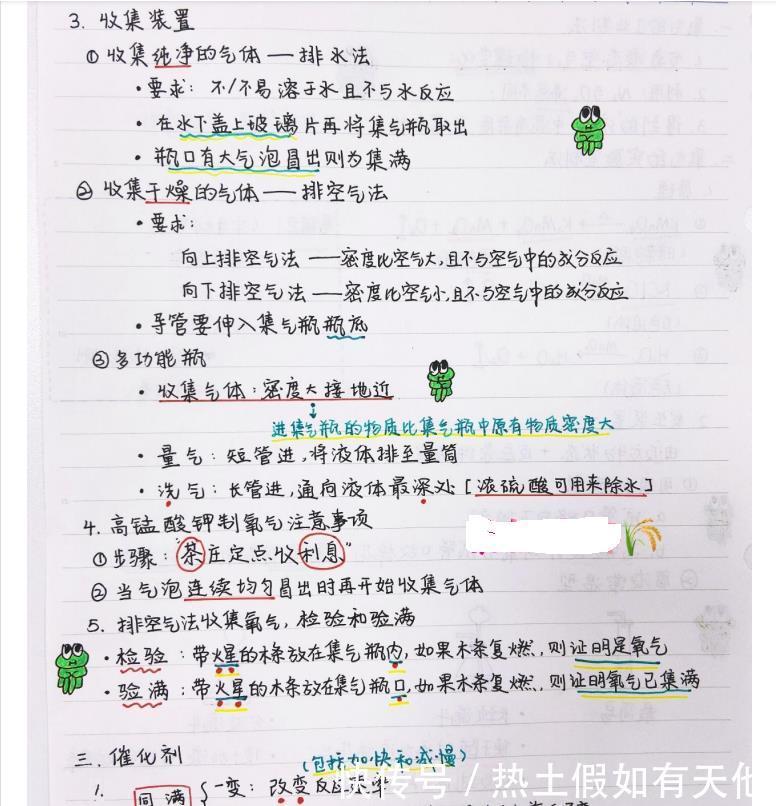 3. 收集装置
① 收集纯净的气体——排水法
·要求：不/不易溶于水且不与水反应
·在水下盖上玻璃片再将集气瓶取出
·瓶口有大气泡冒出则为集满
② 收集干燥的气体——排空气法
·要求：
向上排空气法——密度比空气大,且不与空气中的成分反应
向下排空气法——密度比空气小,且不与空气中的成分反应
·导管要伸入集气瓶瓶底
③多功能瓶
·收集气体：密度大接地近
进集气瓶的物质比集气瓶中原有物质密度大
·量气：短管进,将液体排至量筒
·洗气：长管进,通向液体最深处[浓硫酸可用来除水]
4. 高锰酸钾制氧气注意事项
①步骤："茶庄定点收利息"
②当气泡连续均匀冒出时再开始收集气体
5. 排空气法收集氧气,检验和验满
·检验：带火星的木条放在集气瓶内,如果木条复燃,则证明是氧气
·验满：带火星的木条放在集气瓶口,如果木条复燃,则证明氧气已集满
三. 催化剂
(包括加快和减慢)
1. 同满{一变：改变反应
快传号／热土假如有天他